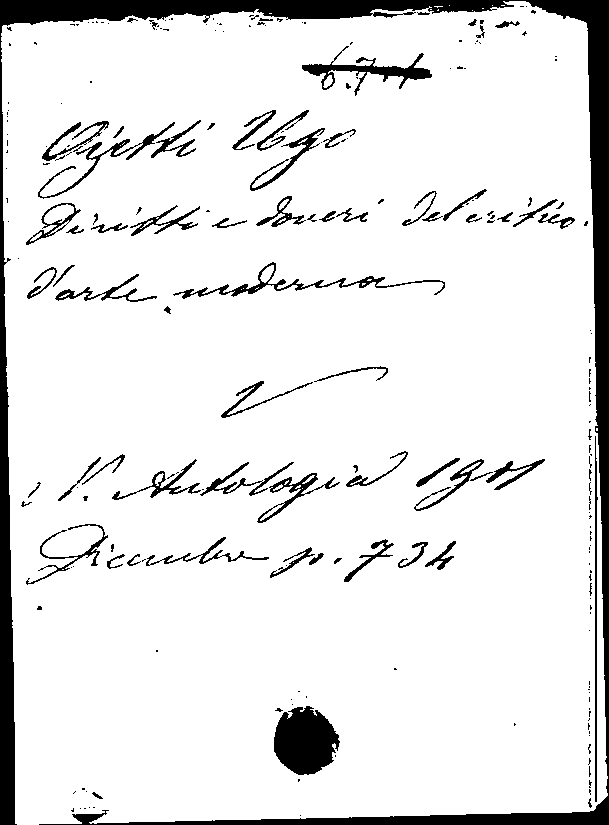 Ojetti Ugo
Diritti e doveri del critico
d'arte moderna
V. Antologia 1901
Dicembre p. 734